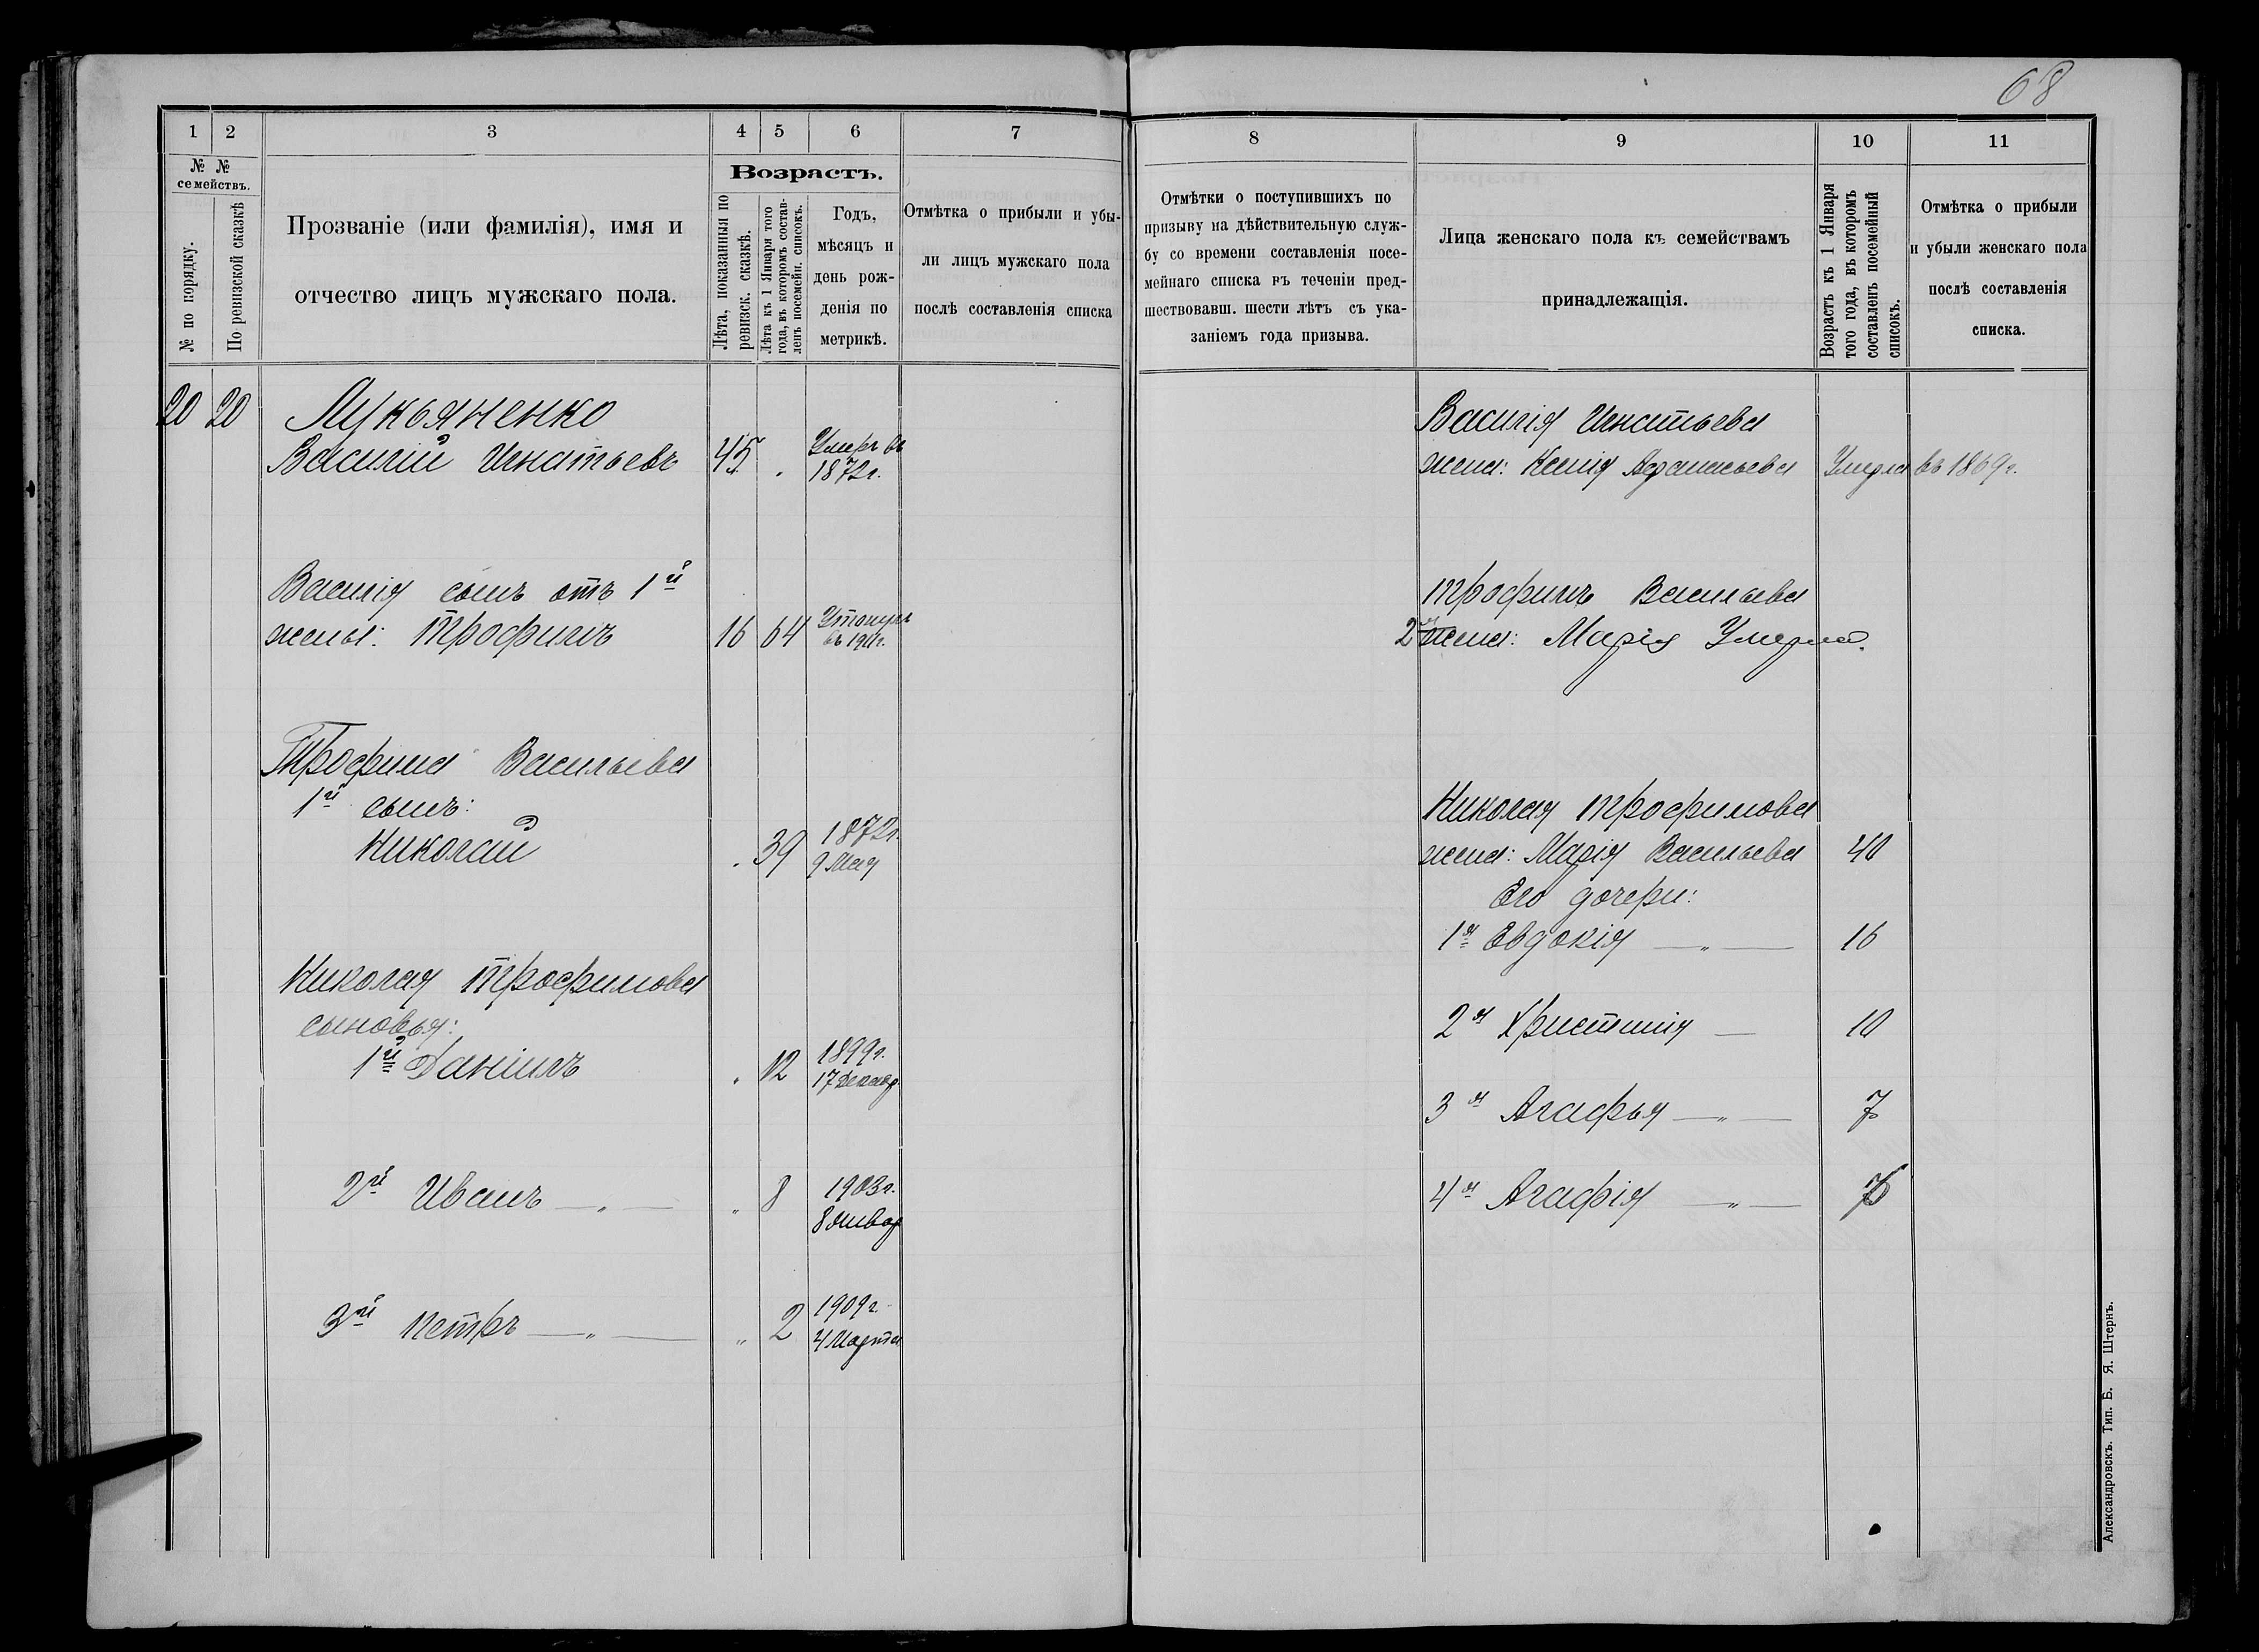 68
1 2 3 4 5 6 7
№ № семействъ.
№ по порядку.
По ревизской сказкѣ
Прозваніе (или фамилія), имя и
отчество лицъ мужскаго пола.
Возрастъ.
Лѣта, показанныя по
ревизск. сказкѣ.
Лѣта къ 1 Января того
года, въ которомъ состав-
ленъ посемейн. списокъ.
Годъ,
мѣсяцъ и
день рож-
денія по
метрикѣ.
Отмѣтка о прибыли и убы-
ли лицъ мужскаго пола
послѣ составленія списка
20 20 Лукьяненко
Василій Игнатьевъ 45 Умеръ въ
1872 г.
Василія сынъ отъ 1й
жены: Трофимъ 16 64 Утонулъ
въ 1911 г.
Трофима Васильева
1й сынъ:
Николай 39 1872 г.
9 Мая
Николая Трофимова
сыновья:
1й Даніилъ „ 12 1899 г.
17 Декабр.
2й Иванъ — „ — „ 8 1903 г.
8 Январ
3й Петръ — „ — „ 2 1909 г.
4 Марта
8 9 10 11
Отмѣтки о поступившихъ по
призыву на дѣйствительную служ-
бу со времени составленія посе-
мейнаго списка въ теченіи пред-
шествовавш. шести лѣтъ съ ука-
заніемъ года призыва.
Лица женскаго пола къ семействамъ
принадлежащія.
Возрастъ къ 1 Января
того года, въ которомъ
составленъ посемейный
списокъ.
Отмѣтка о прибыли
и убыли женскаго пола
послѣ составленія
списка.
Василія Игнатьева
жена: Ксенія Афанасьева Умерла въ 1869 г.
Трофимъ Васильева
2 жена: Марія Умерла.
Николая Трофимова
жена: Марія Васильева 40
Его дочери:
1я Евдокія — „ — 16
2я Христинія — 10
3я Агафья — „ — 7
4я Агафія — „ —
Александровскъ. Тип. Б. Я. Штернъ.